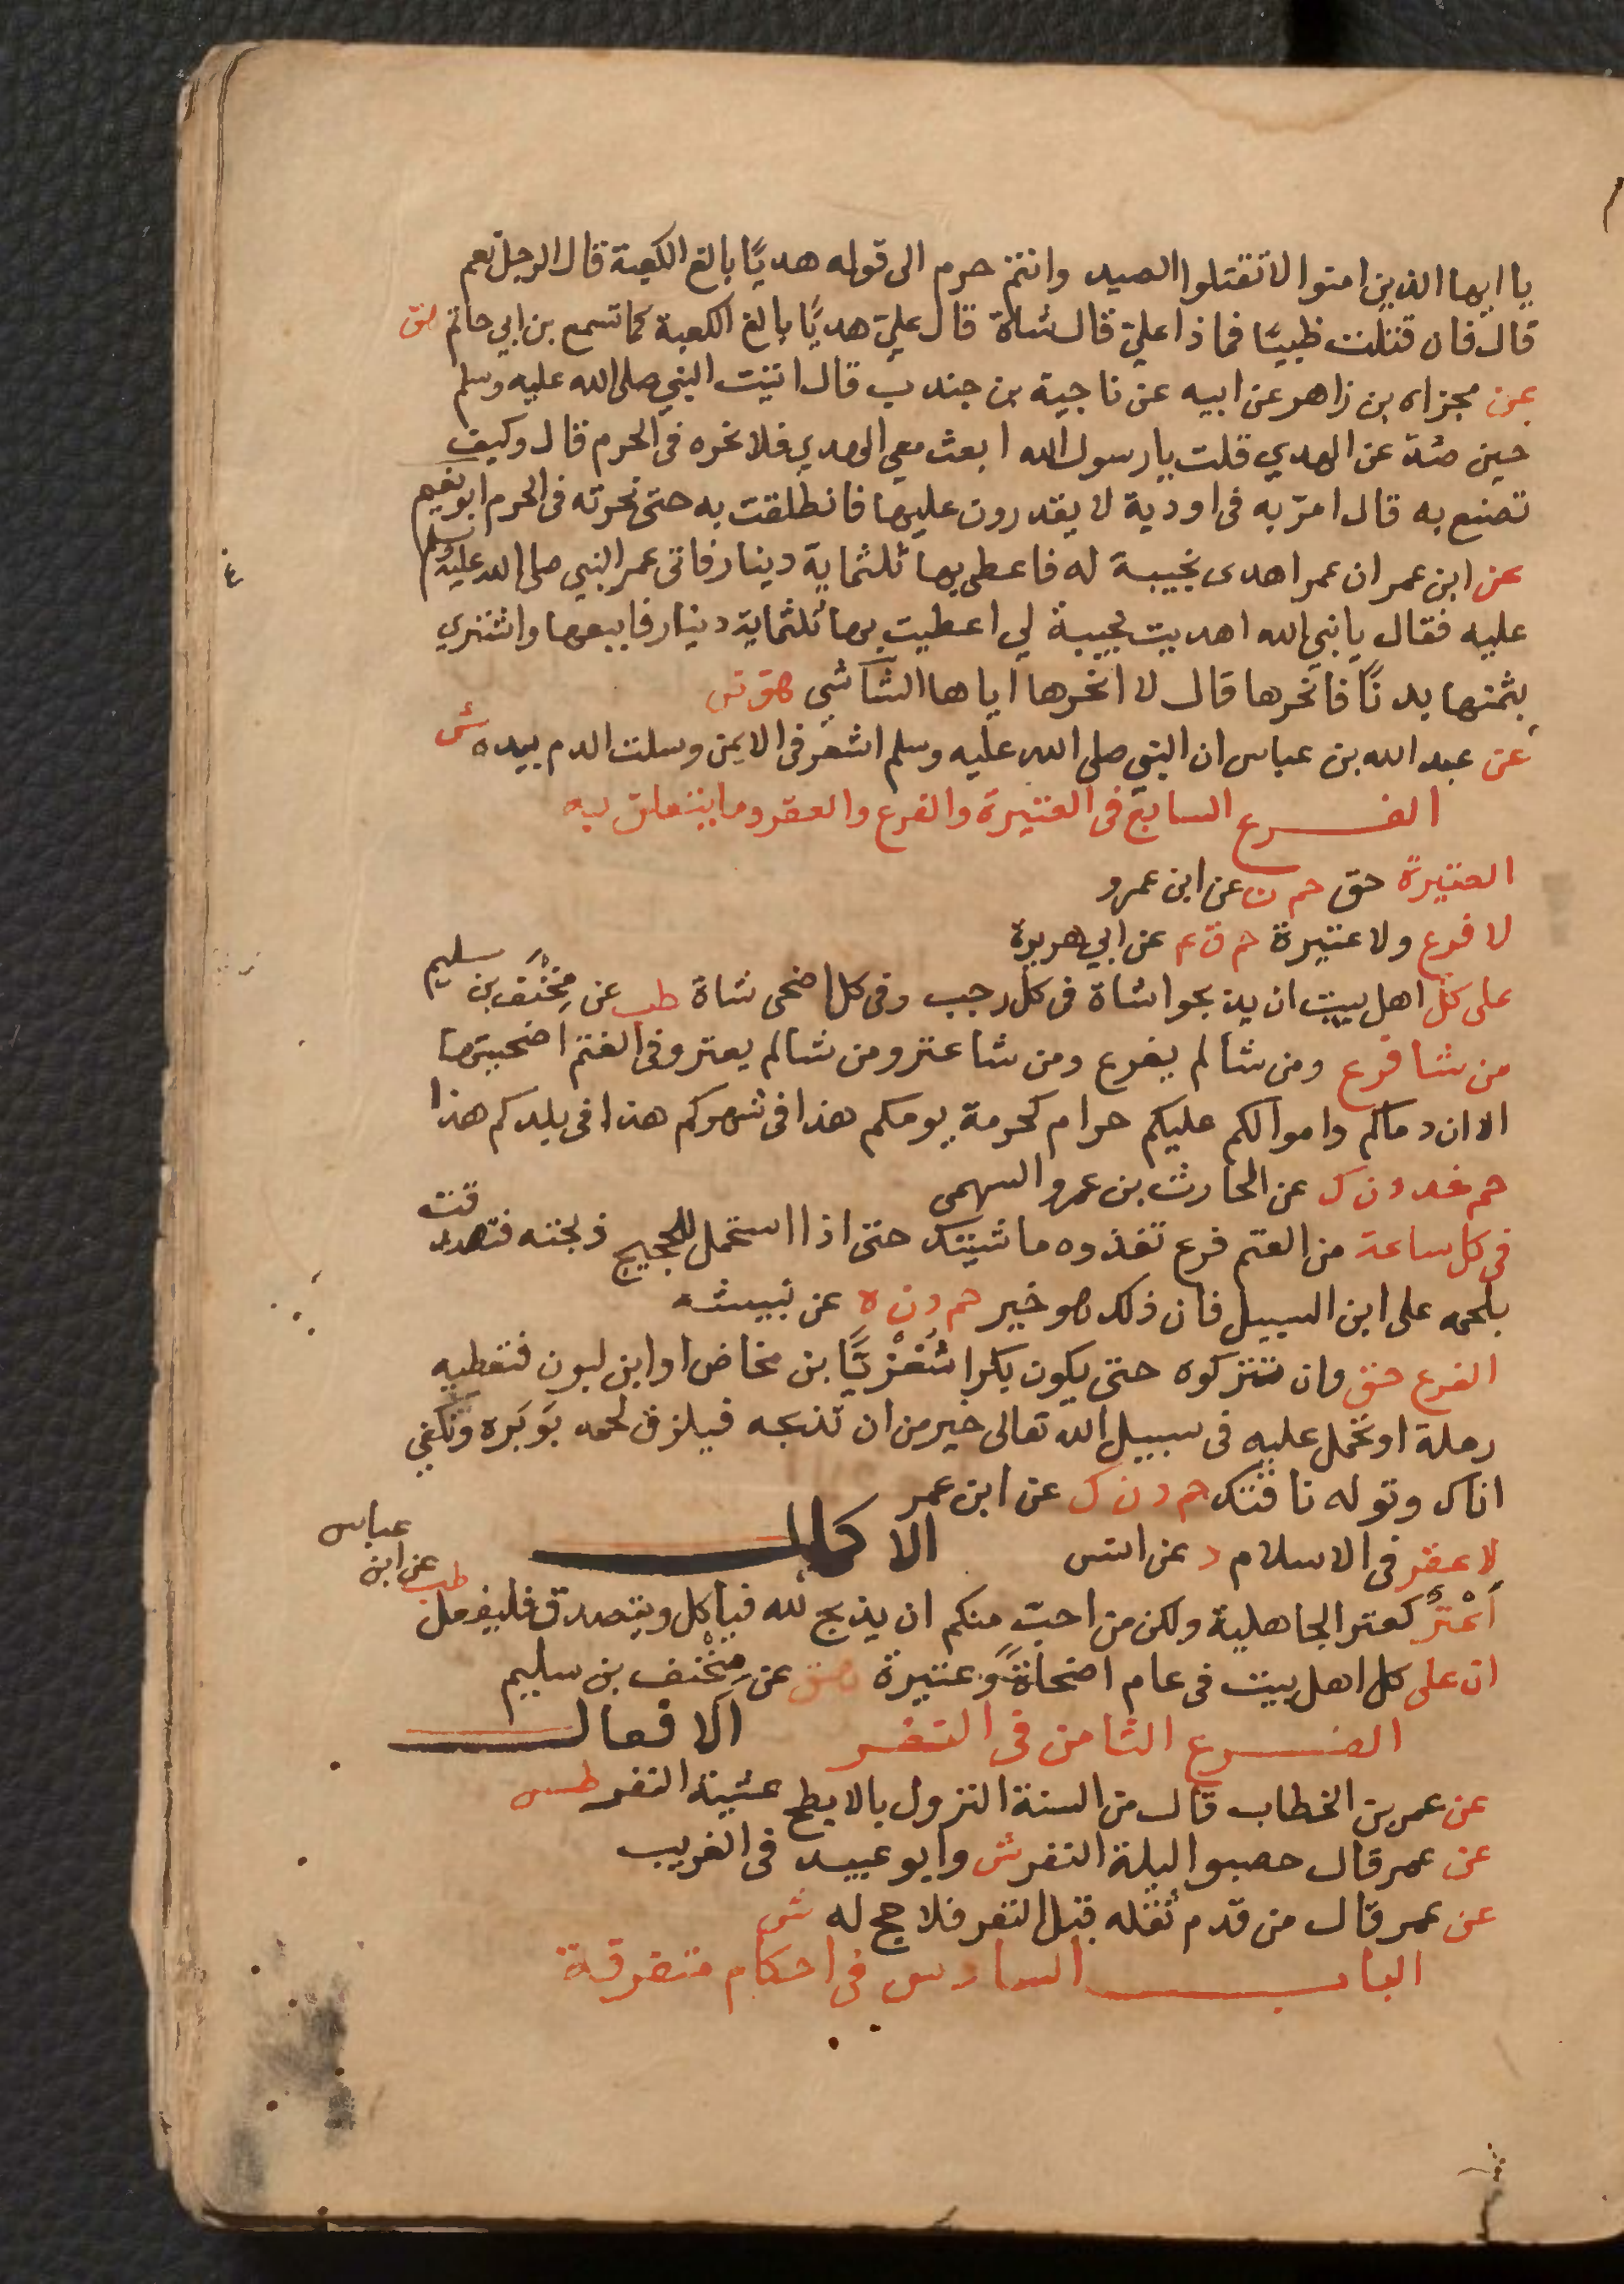 يا ايها الذين امنوا لا تقتلوا الصيد وانتم حرم الى قوله هديًا بالغ الكعبة قال الرجل نعم
قال فان قتلت ظبيًا فماذا عليّ قال شاة قال عليّ هديًا بالغ الكعبة كما تسمع بن ابي حاتم هق
عن مجزاه بن زاهر عن ابيه عن ناجية بن جندب قال اتيت النبي صلى الله عليه وسلم
حين صدّ عن الهدي قلت يا رسول الله ابعث معي الهدي فلانحره فى الحرم قال وكيف
تصنع به قال امرّ به فى اودية لا يقدرون عليها فانطلقت به حتى نحرته فى الحرم ابو نعيم
عن ابن عمر ان عمر اهدى نجيبة له فاعطى بها ثلثماية دينار فاتى عمر النبي صلى الله عليه وسلم
عليه فقال يا نبي الله اهديت نجيبة لي اعطيت بها ثلثماية دينار فابيعها واشتري
بثمنها بدنًا فانحرها قال لا انحرها اياها الشاشي هق ض
عن عبد الله بن عباس ان النبي صلى الله عليه وسلم اشعر فى الايمن وسلت الدم بيده ش
الفرع السابع فى العتيرة والفرع والعقر وما يتعلق به
العتيرة حق حم ن عن ابن عمرو
لا فرع ولا عتيرة حم ق ع عن ابي هريرة
على كل اهل بيت ان يذبحوا شاة فى كل رجب وفى كل اضحى شاة طب عن مِخْنَف بن سليم
من شا فرع ومن شا لم يفرع ومن شا عتر ومن شا لم يعتر وفى الغنم اضحيتها
الا ان دماكم واموالكم عليكم حرام كحرمة يومكم هذا فى شهركم هذا فى بلدكم هذا
حم خد د ن ك عن الحارث بن عمرو السهمى
فى كل ساعة من الغنم فرع تغذوه ماشيتك حتى اذا استحمل للحجيج ذبحته فتصدقت
بلحمه على ابن السبيل فان ذلك هو خير حم د ن ه عن نبيشه
الفرع حق وان تتركوه حتى يكون بكرا شُغْزُبًّا بن مخاض او ابن لبون فتعطيه
رملة او تحمل عليه فى سبيل الله تعالى خير من ان تذبحه فيلزق لحمه بوَبَره وتكفي
اناك وتوله ناقتك حم د ن ك عن ابن عمر
لا عقر فى الاسلام د عن انس الاكمال
أعْتَرُ كعتر الجاهلية ولكن من احبّ منكم ان يذبح لله فياكل ويتصدق فليفعل طب عن ابن عباس
ان على كل اهل بيت فى عام اضحاةً وعتيرة هق عن مِخْنف بن سليم
الفرع الثامن فى النفر الافعال
عن عمر بن الخطاب قال من السنة النزول بالابطح عشية النفر طس
عن عمر قال حصبوا ليلة النفر ش وابو عبيد فى الغريب
عن عمر قال من قدم ثقله قبل النفر فلا حج له ش
الباب السادس فى احكام متفرقة